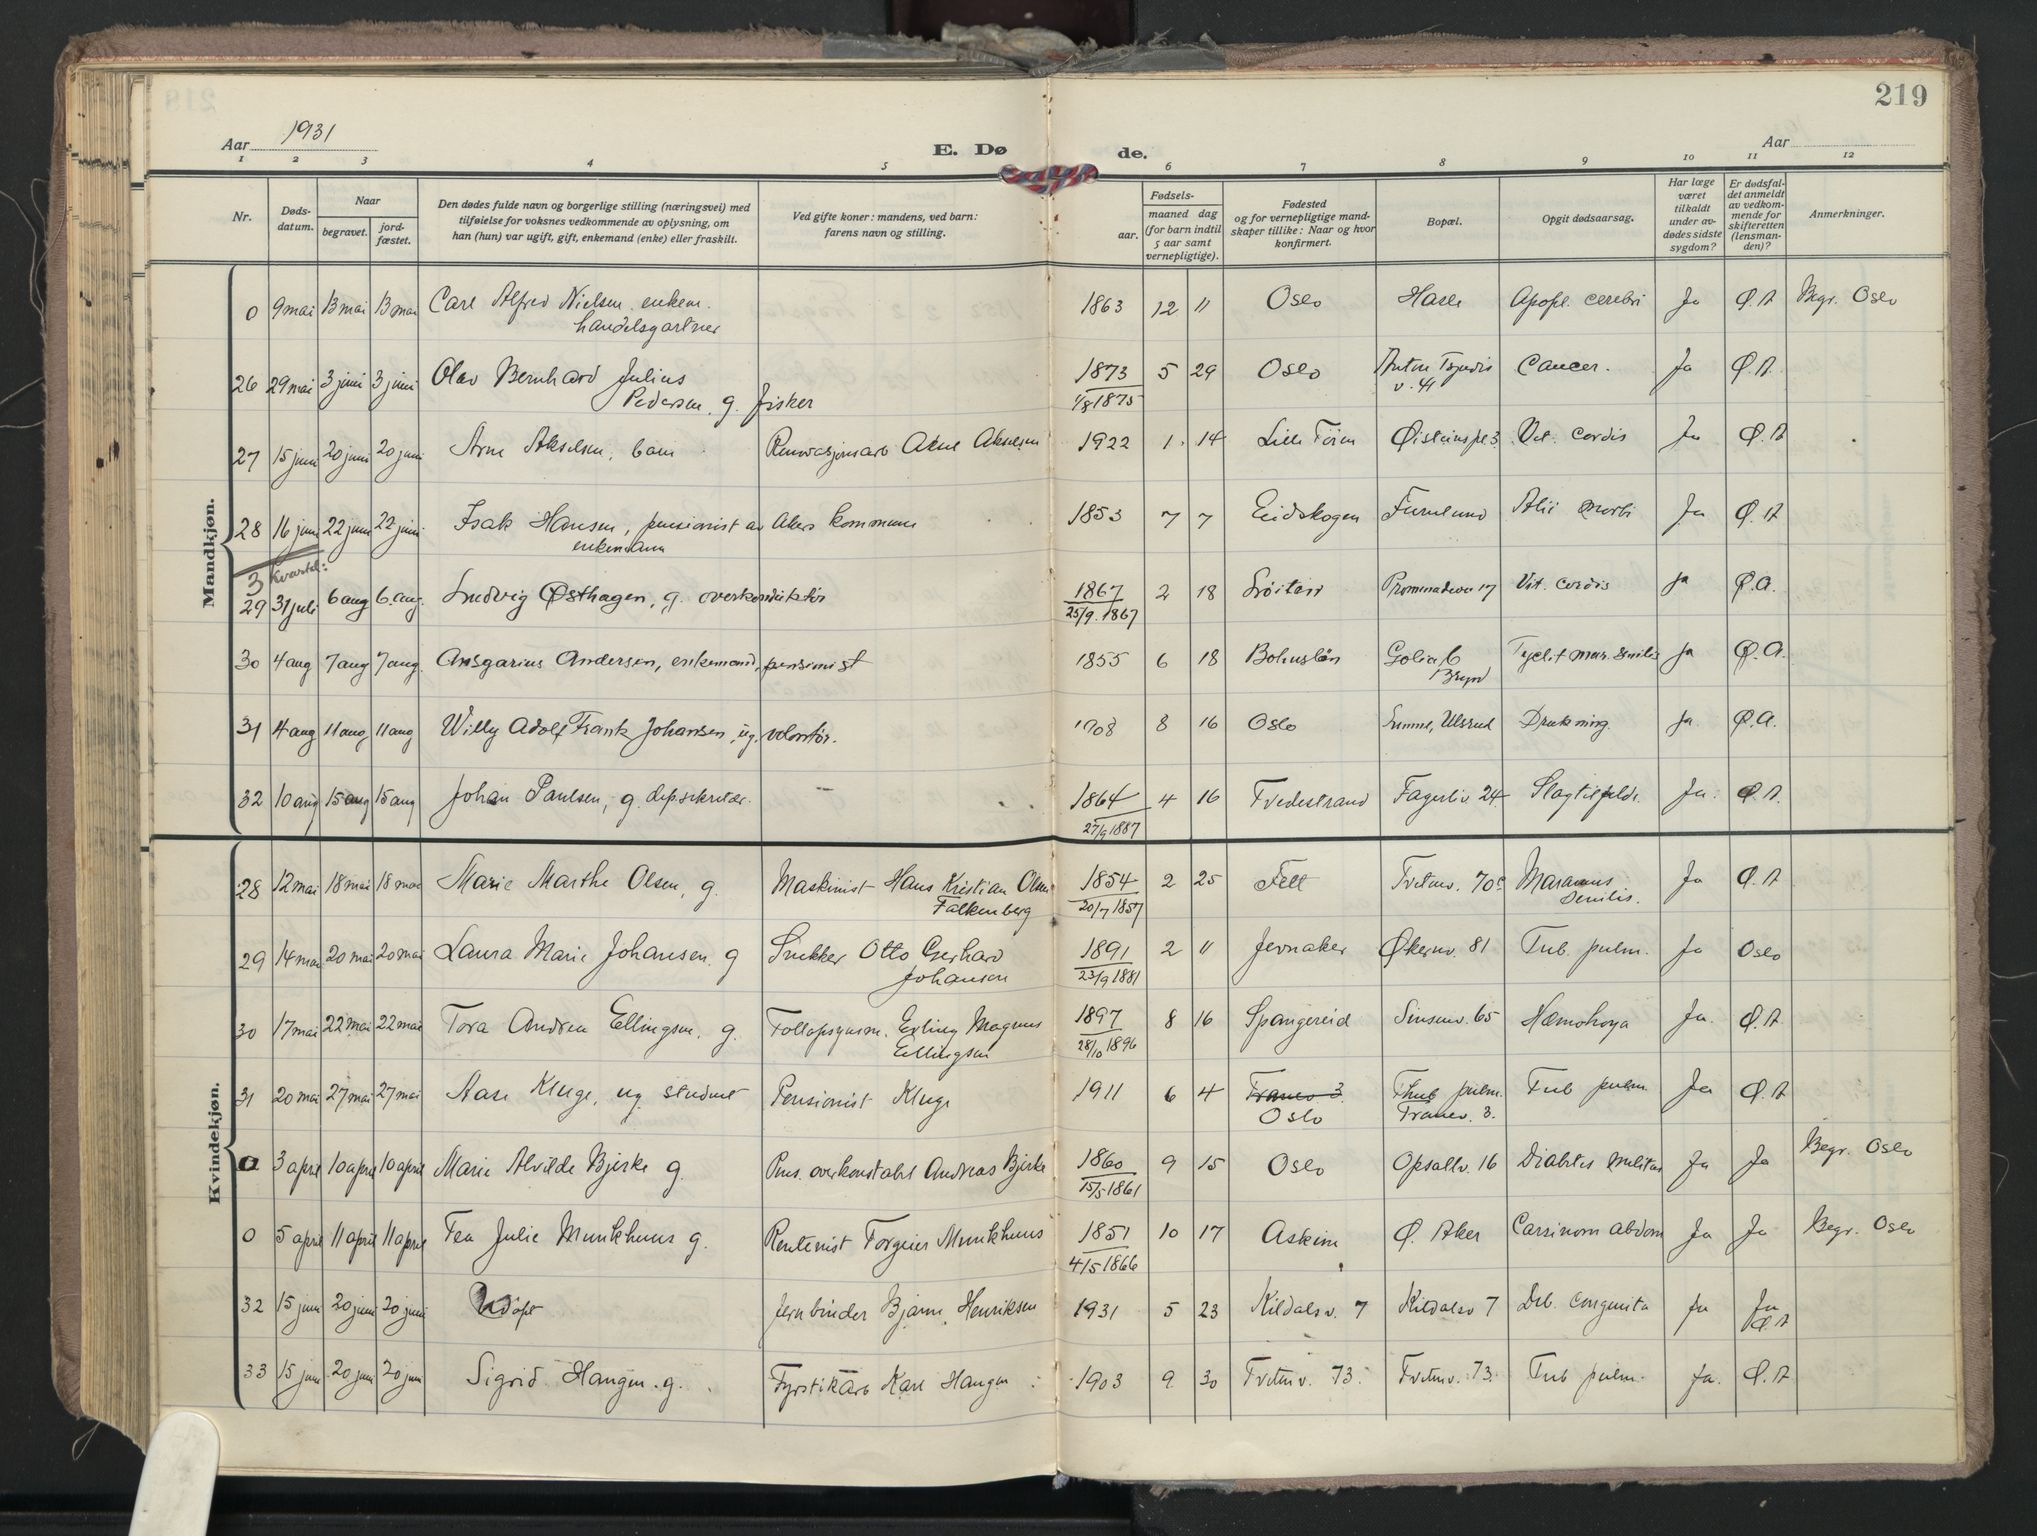 219
Aar 1931
E. Døde.
Aar
1 2 3 4 5 6 7 8 9 10 11 12
Nr.
Døds-datum.
Naar
begravet.
jord-fæstet.
Den dødes fulde navn og borgerlige stilling (næringsvei) med
tilføielse for voksnes vedkommende av oplysning, om
han (hun) var ugift, gift, enkemand (enke) eller fraskilt.
Ved gifte koner: mandens, ved barn:
farens navn og stilling.
Fødsels-
aar.
maaned dag
(for barn indtil
5 aar samt
vernepligtige).
Fødested
og for vernepligtige mand-
skaper tillike: Naar og hvor
konfirmert.
Bopæl.
Opgit dødsaarsag.
Har læge
været
tilkaldt
under av-
dødes sidste
sygdom?
Er dødsfal-
det anmeldt
av vedkom-
mende for
skifteretten
(lensman-
den)?
Anmerkninger.
Mandkjøn.
0 9 mai 13 mai 13 mai Carl Alfred Nielsen. enkem. 1863 12 11 Oslo Hasle Apopl. cerebri Ja Ø.A Begr. Oslo
handelsgartner
26 29 mai 3 juni 3 juni Olav Bernhard Julius 1873 5 29 Oslo Anton Cancer. Ja Ø.A.
Pedersen. g. fisker 1/8 1875 v. 41
27 15 juni 20 juni 20 juni Arne Akselsen, barn Renovasjonsarb Akselsen 1922 1 14 Lille Tøien Øisteinspl 3 Vit. cordis Ja Ø.A
28 16 juni 22 juni 22 juni Isak Hansen, pensionist av Akers kommune 1853 7 7 Eidskogen Furulund Alii morbi Ja Ø.A
enkemann
3 Kvartal:
29 31 juli 6 aug 6. aug. Ludvig Østhagen, g. overkonduktør 1867 2 18 Løiten Promenadevei 17 Vit. cordis ja Ø.A.
25/9. 1867
30 4 aug 7 aug 7 aug. Ansgarius Andersen, enkemand, pensionist 1855 6 18 Bohuslän Golia 6 mar. senilis ja Ø.A.
Bryn
31 4 aug 11 aug 11 aug Willy Adolf Frank Johansen, ug. volontør. 1908 8 16 Oslo Ulsrud Drukning. ja. Ø.A.
32 10 aug 15 aug 15 aug Johan Paulsen, g. dep.sekretær. – 1864 4 16 Tvedestrand Fagerliv. 24 Slagtilfelde. Ja. Ø.A.
27/9 1887
Kvindekjøn.
28 12 mai 18 mai 18 mai Marie Marthe Olsen, g. Maskinist Hans Kristian Olsen 1854 2 25 Fett Tvetenv. 70c Marasmus Ja Ø.A
Falkenberg 20/7 1857 senilis.
29 14 mai 20 mai 20 mai Laura Marie Johansen. g Snekker Otto Gerhard 1891 2 11 Jevnaker Økernv. 81 Tub. pulm. Ja Oslo
Johansen 23/9 1881
30 17 mai 22 mai 22 mai Tora Andrea Ellingsen. g. Tollopsynsm. Erling Magnus 1897 8 16 Spangereid Sinsenv. 65 Ja. Ø.A
Ellingsen 28/10 1896
31 20 mai 27 mai 27 mai Aase Kluge, ug student Pensionist Kluge 1911 6 4 Tranev 3. Thub pulm. Tub pulm. Ja Ø.A
Oslo Tranev. 3.
0 3 april 10 april 10 april Marie Alvilde Bjerke g. Pens. overkonstabel Andreas Bjerke 1860 9 15 Oslo Opsallv. 16 Diabetes melitus Ja Ja Begr. Oslo
15/5 1861
0 5 april 11 april 11 april Tea Julie Munkhaus g. Rentenist Torgeier Munkhaus 1851 10 17 Askim Ø. Aker Carsinom abdom Ja Ja Begr. Oslo
4/5 1866
32 15 juni 20 juni 20 juni Udøpt Jernbinder Bjarne Henriksen 1931 5 23 Kildalsv. 7 Kildalsv 7 Deb. congenita Ja Ja
Ø.A
33 15 juni 20 juni 20 juni Sigrid Haugen. g. Fyrstikarb Karl Haugen 1903 9 30 Tvetenv. 73. Tvetenv. 73. Tub pulm. Ja. Ø.A